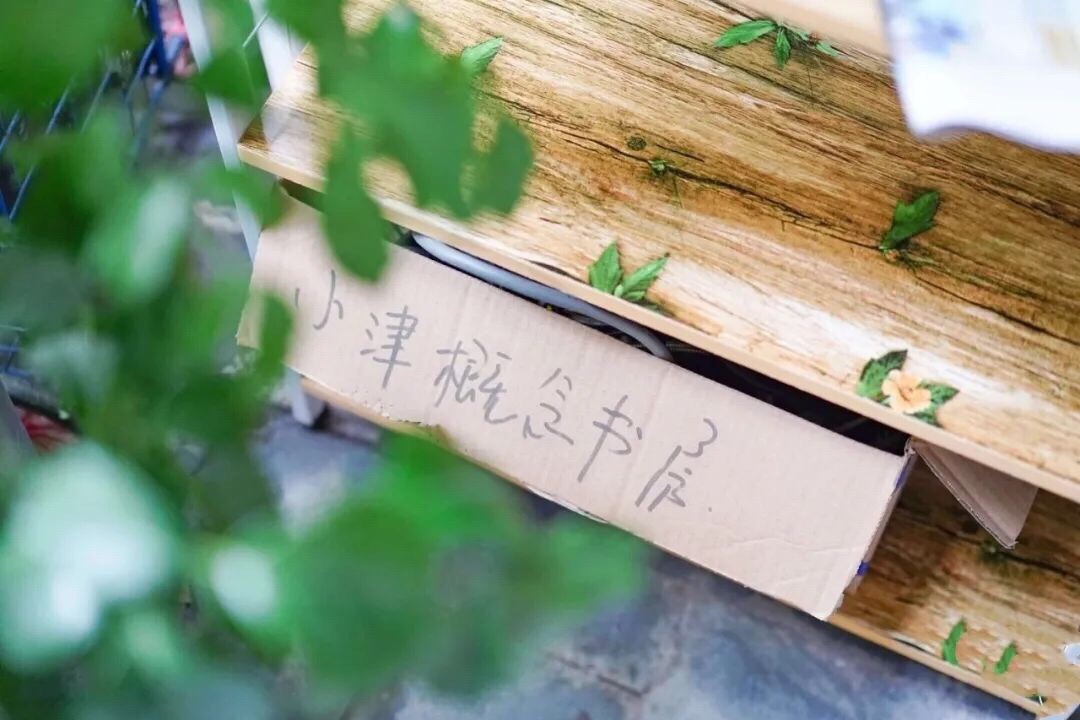 小津概念书房.